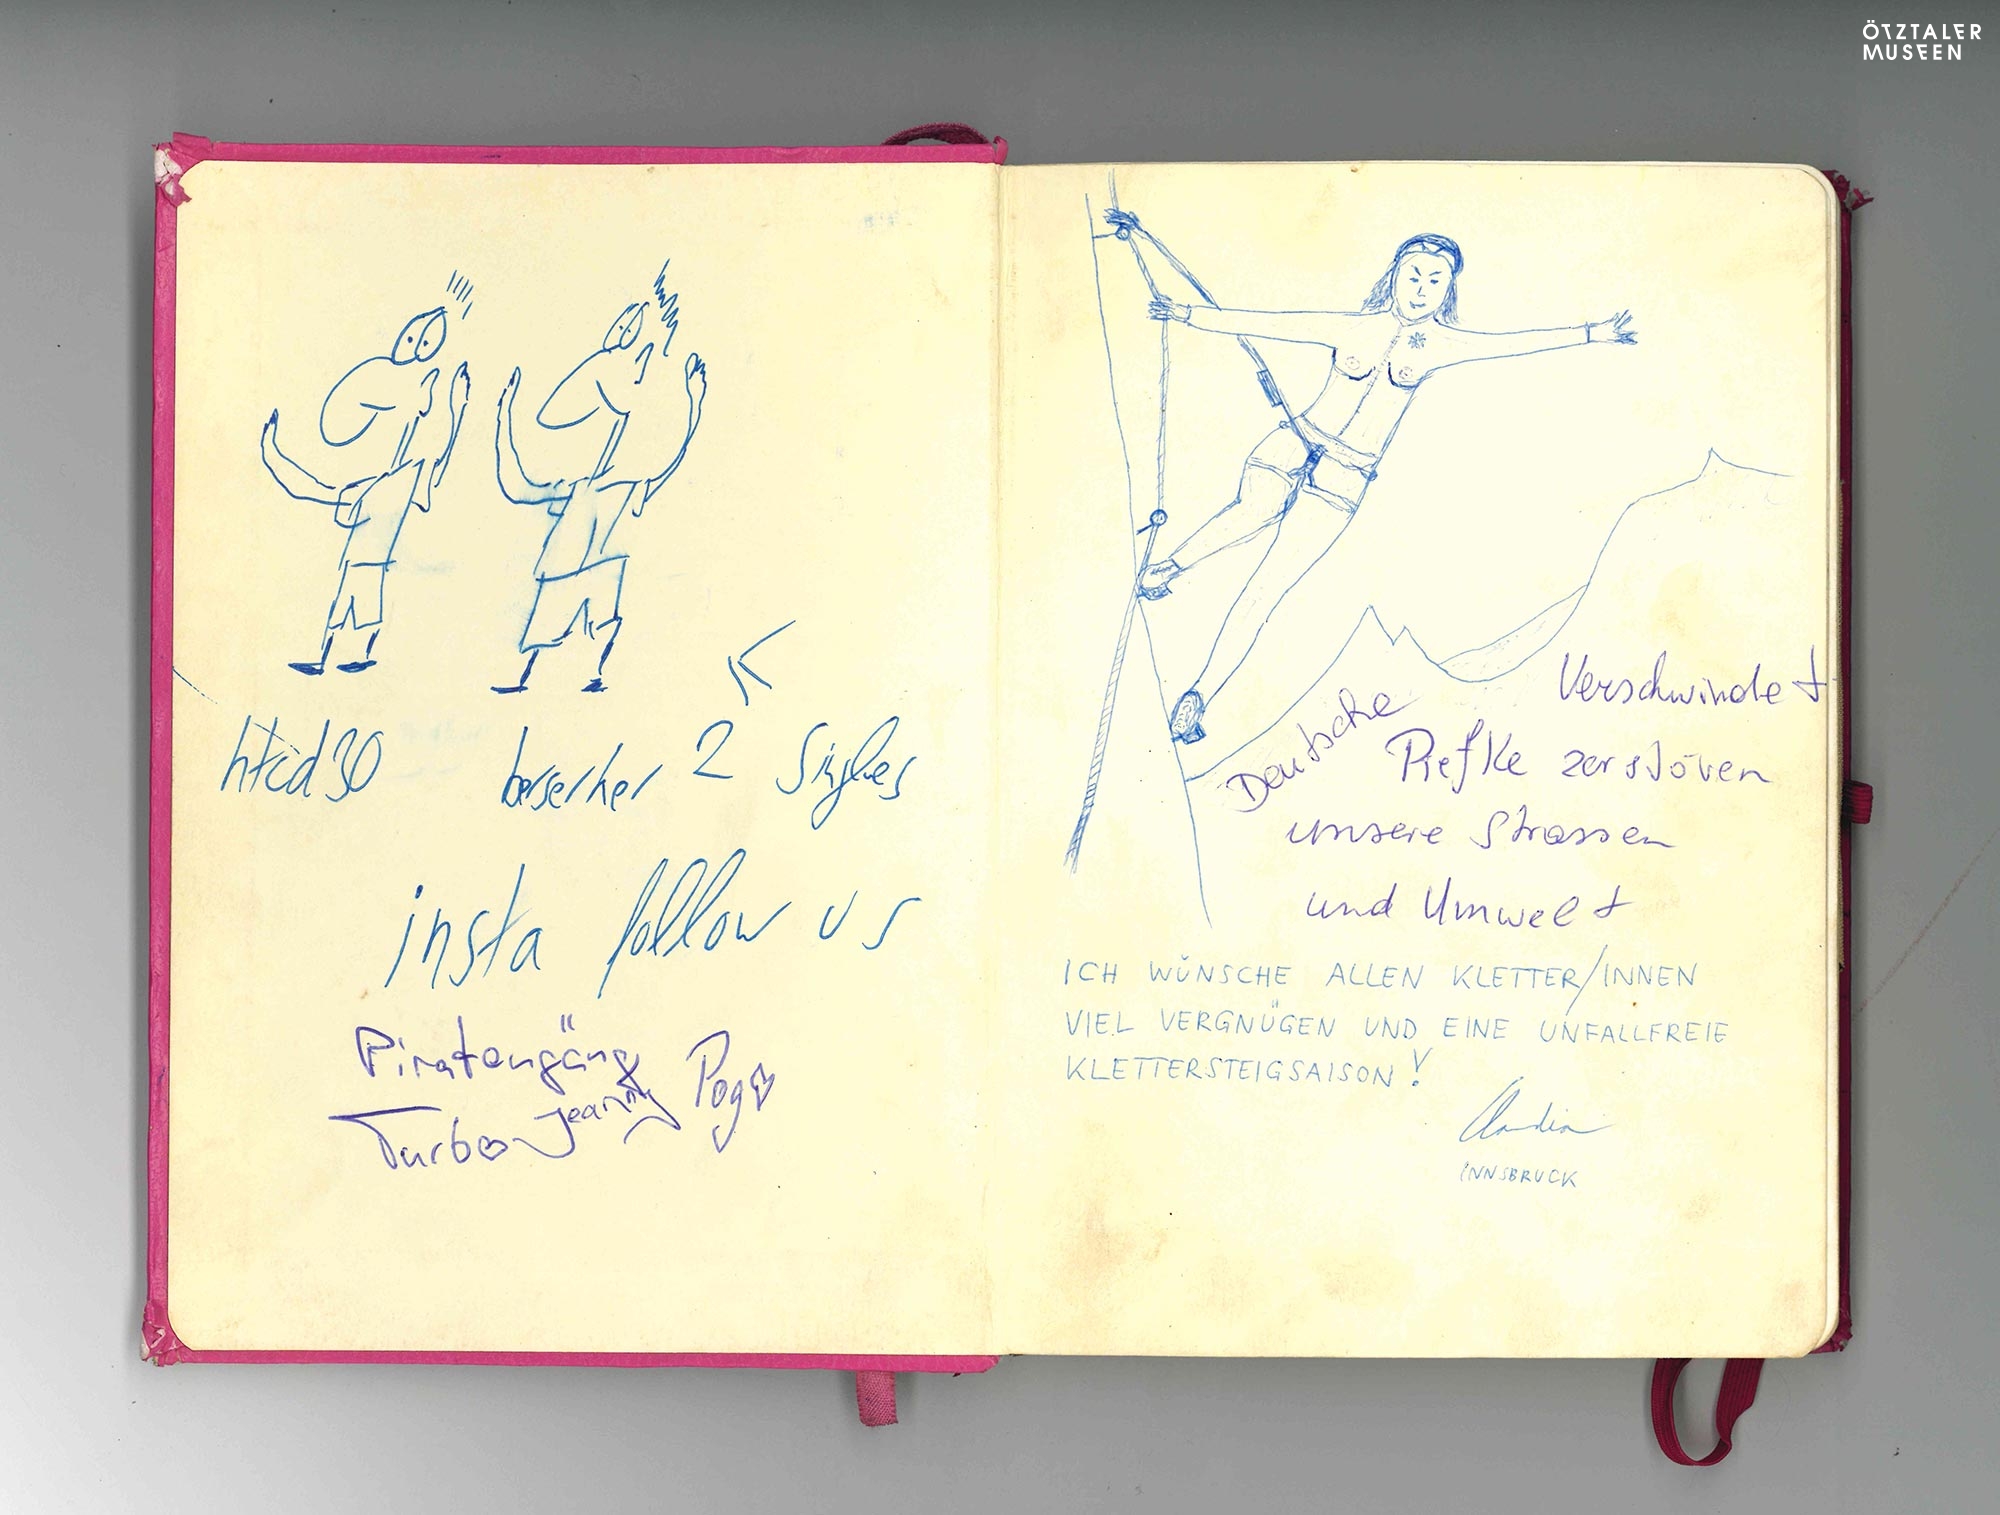 ÖTZTALER
MUSEEN
htcd30 berserker 2 Singles
insta follow us
Piratengäng
Turbo Jeanny Pogo
Verschwindet
Deutsche Piefke zerstören
unsere Strassen
und Umwelt
ICH WÜNSCHE ALLEN KLETTER/INNEN
VIEL VERGNÜGEN UND EINE UNFALLFREIE
KLETTERSTEIGSAISON!
Claudia
INNSBRUCK